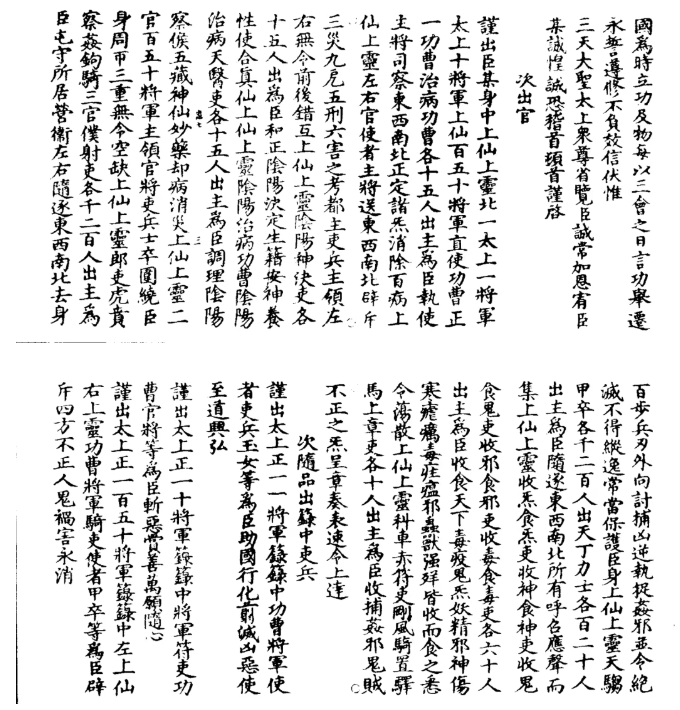 國為時立功及物每以三會之日言功舉遷
永誓遵修不負效信伏惟
三天大聖太上衆尊省覽臣誠常加恩宥臣
某誠惶誠恐稽首頓首謹啓
次出官
謹出臣某身中上仙上靈北一太上一將軍
太上十將軍上仙百五十將軍直使功曹正
一功曹治病功曹各十五人出主為臣執使
主將司察東西南北正定諸炁消除百病上
仙上靈左右官使者主將送東西南北辟斥
三災九厄五刑六害之考都主吏兵主領左
右無令前後錯互上仙上靈陰陽神決吏各
十五人出為臣和正陰陽決定生籍安神養
性使合真仙上仙上靈陰陽治病功曹陰陽
治病天醫吏各十五人出主為臣調理陰陽
察候五藏神仙妙藥却病消災上仙上靈二
官百五十將軍主領官將吏兵士卒圍繞臣
身周甲三重無令空缺上仙上靈郎吏虎賁
察姦鉤騎三官僕射吏各千二百人出主為
臣屯守所居營衛左右隨逐東西南北去身
百步兵刃外向討捕凶逆執捉姦邪並令絕
滅不得縱逸常當保護臣身上仙上靈天騶
甲卒各千二百人出天丁力士各百二十人
出主為臣隨逐東西南北所有呼召應聲而
集上仙上靈收炁食炁吏收神食神吏收鬼
食鬼吏收邪食邪吏收毒食毒吏各六十人
出主為臣收食天下毒疫鬼炁妖精邪神傷
寒瘧癘毒疰瘟邪蟲獸強殃皆收而食之悉
令蕩散上仙上靈科車赤符吏剛風騎置驛
馬上章吏各十人出主為臣收捕姦邪鬼賊
不正之炁呈章奏表速令上達
次隨品出籙中吏兵
謹出太上正一一將軍籙籙中功曹將軍使
者吏兵玉女等為臣助國行化前滅凶惡使
至道興弘
謹出太上正一十將軍籙籙中將軍符吏功
曹官將等為臣斬惡賞善萬願隨心
謹出太上正一百五十將軍籙籙中左上仙
右上靈功曹將軍騎吏使者甲卒等為臣辟
斥四方不正人鬼禍害永消